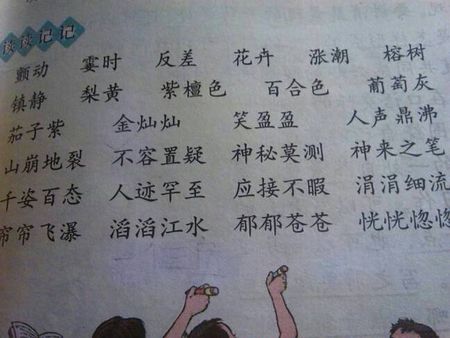 读读记记
颤动 霎时 反差 花卉 涨潮 榕树
镇静 梨黄 紫檀色 百合色 葡萄灰
茄子紫 金灿灿 笑盈盈 人声鼎沸
山崩地裂 不容置疑 神秘莫测 神来之笔
千姿百态 人迹罕至 应接不暇 涓涓细流
帘帘飞瀑 滔滔江水 郁郁苍苍 恍恍惚惚